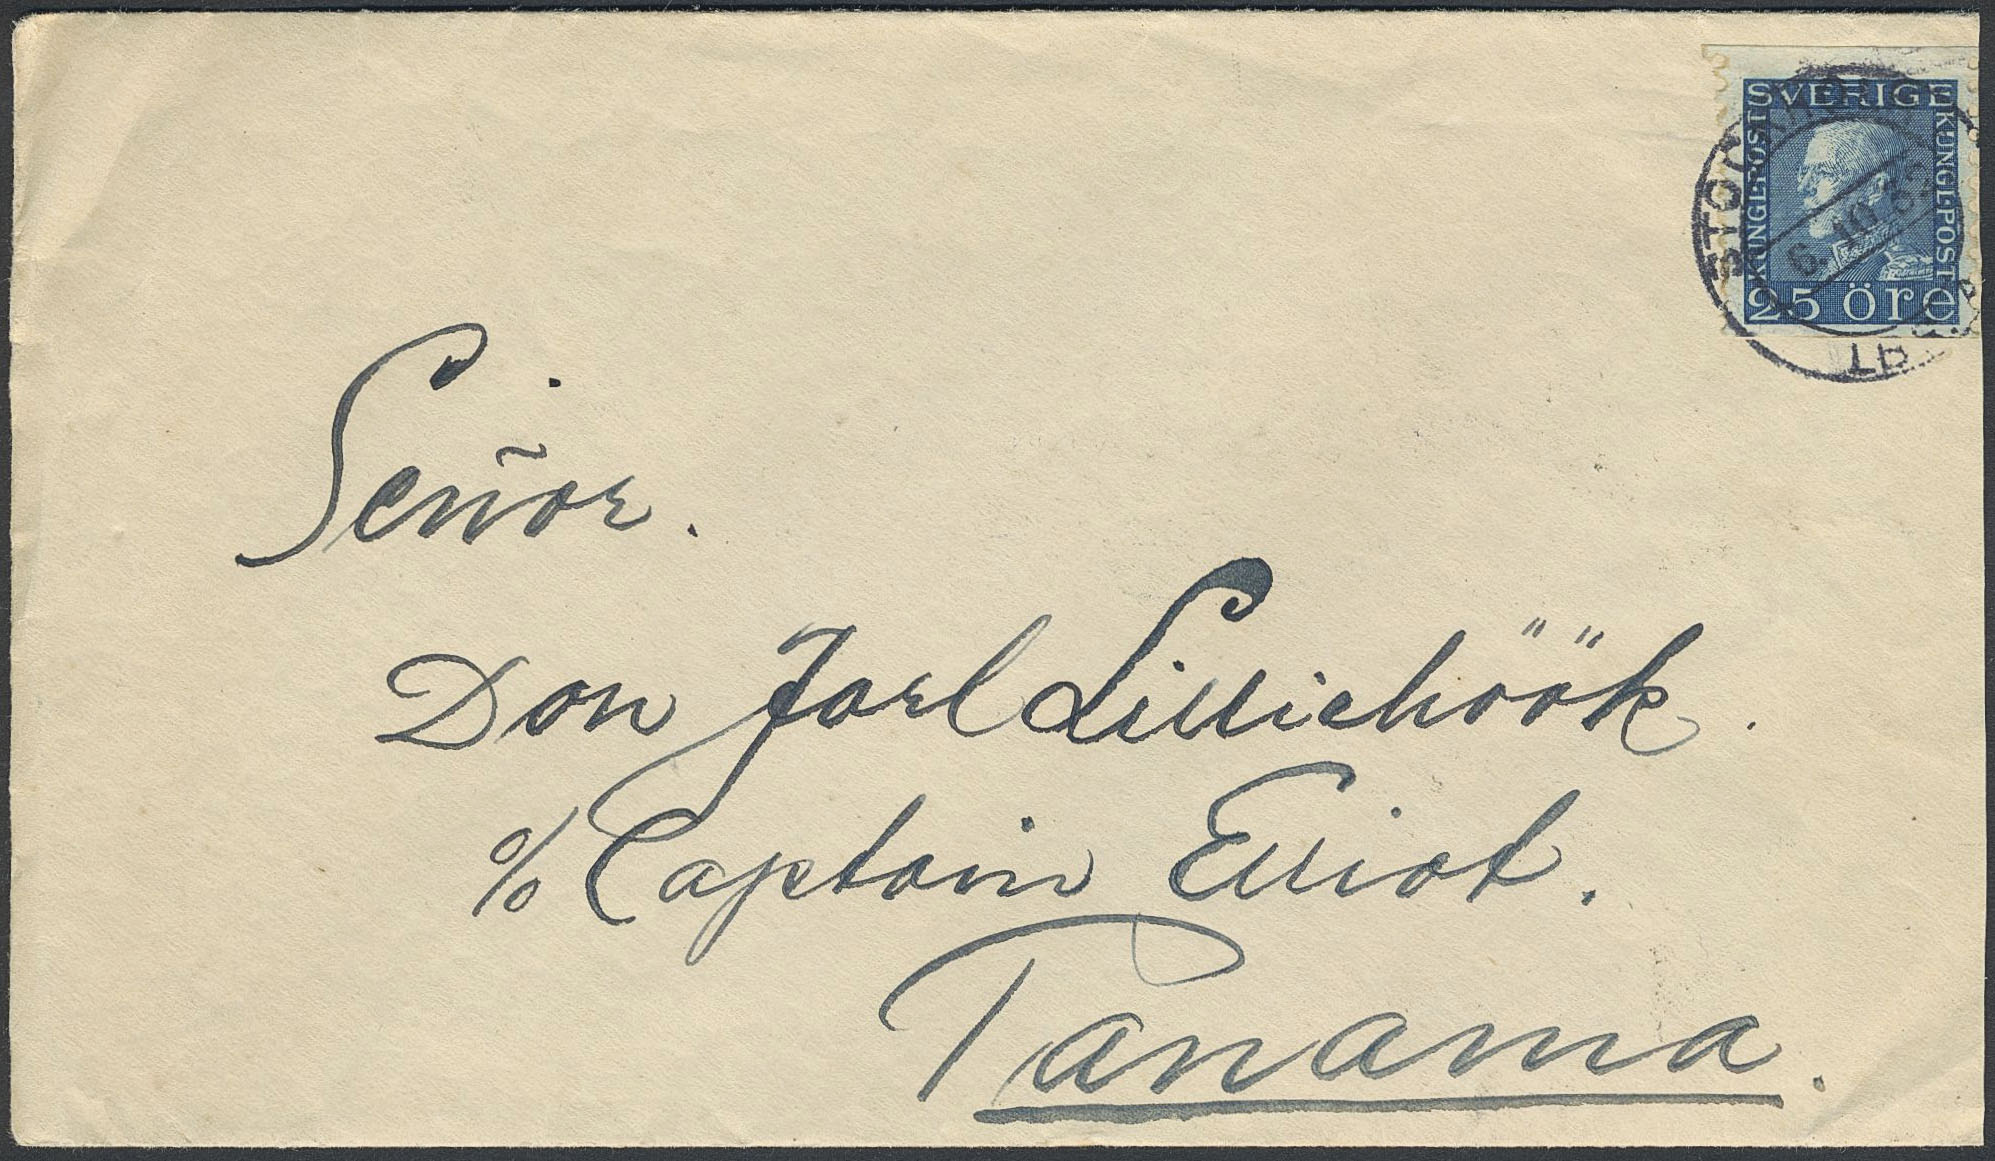 SVERIGE
KUNGL.POST
KUNGL.POST
25 öre
STOCKHOLM
6. 10. 32
Señor.
Don Jarl Lilliehöök.
c/o Captain Elliot.
Panama.